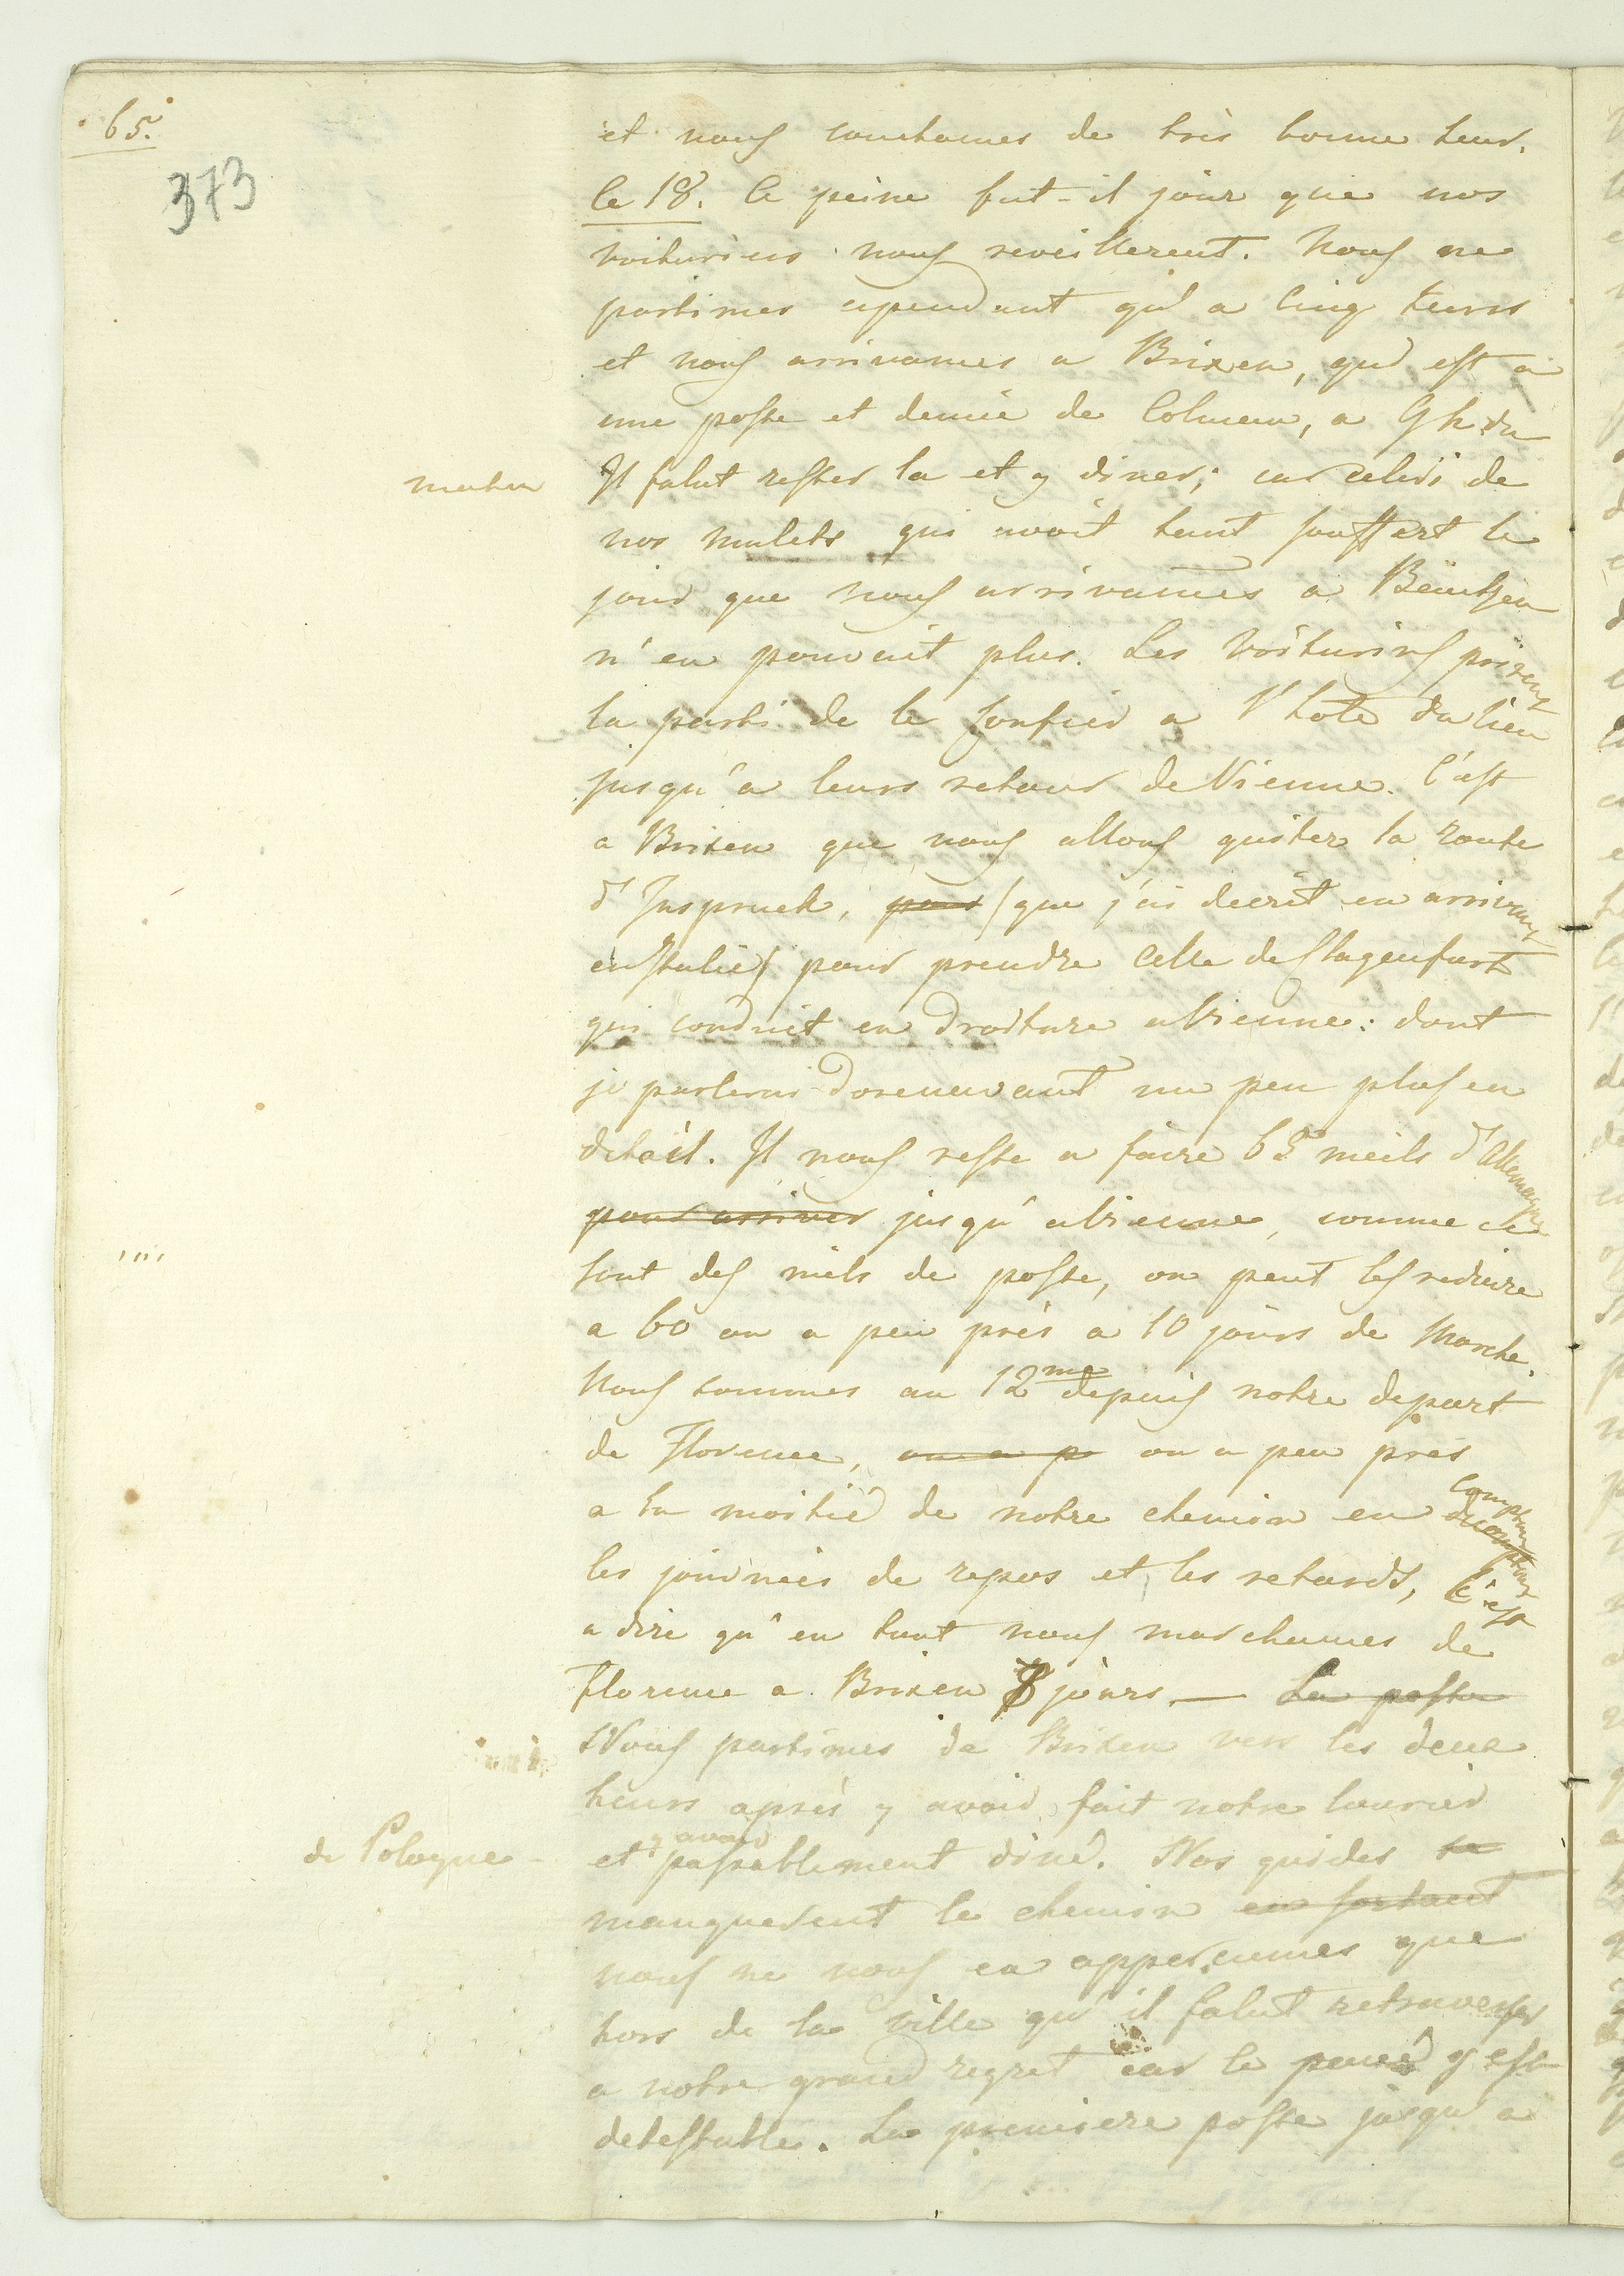 65.
373
et nous couchames de très bonne heur.
le 18. a peine fut-il jour que nos
voiturins nous reveillerent. Nous ne
partimes cependant qu'a cinq heurs
et nous arrivames a Brixen, qui est a
une poste et demie de Colmann, a 9 h. du
matin Il falut rester la et y diner; car celui de
nos mulets qui avoit tant souffert le
jour que nous arrivames a
n'en pouvait plus. Les voiturins prirent
le parti de le confier a l'hote du lieu
jusqu'a leurs retour de Vienne. C'est
a Brixen que nous allons quiter la route
d'Inspruck, pour (que j'ai decrit en arrivant
en Italie) pour prendre celle de Klagenfurt
qui conduit en droiture a Vienne: dont
je parlerai dorenavant un peu plus en
detail. Il nous reste a faire 63 meils d'Allemagne
pour arriver jusqu'a Vienne, comme ce
sont des miels de poste, on peut les reduire
a 60 ou a peu près a 10 jours de marche.
Nous sommes au 12me depuis notre depart
de Florence, ou a p ou a peu près
a la moitié de notre chemin en decomptant comptant
les journées de repos et les retards, C'est
a dire qu'en tout nous marchames de
Florence a Brixen 8 jours. — La poste
Nous partimes de Brixen vers les deux
heurs après y avoir fait notre courier
de Pologne - et y avoir passablement diné. Nos guides se
manquerent le chemin en sortant
nous ne nous en apperçumes que
hors de la ville qu'il falut retraverser
a notre grand regret car le pavé y est
detestable. La premiere poste jusqu'a